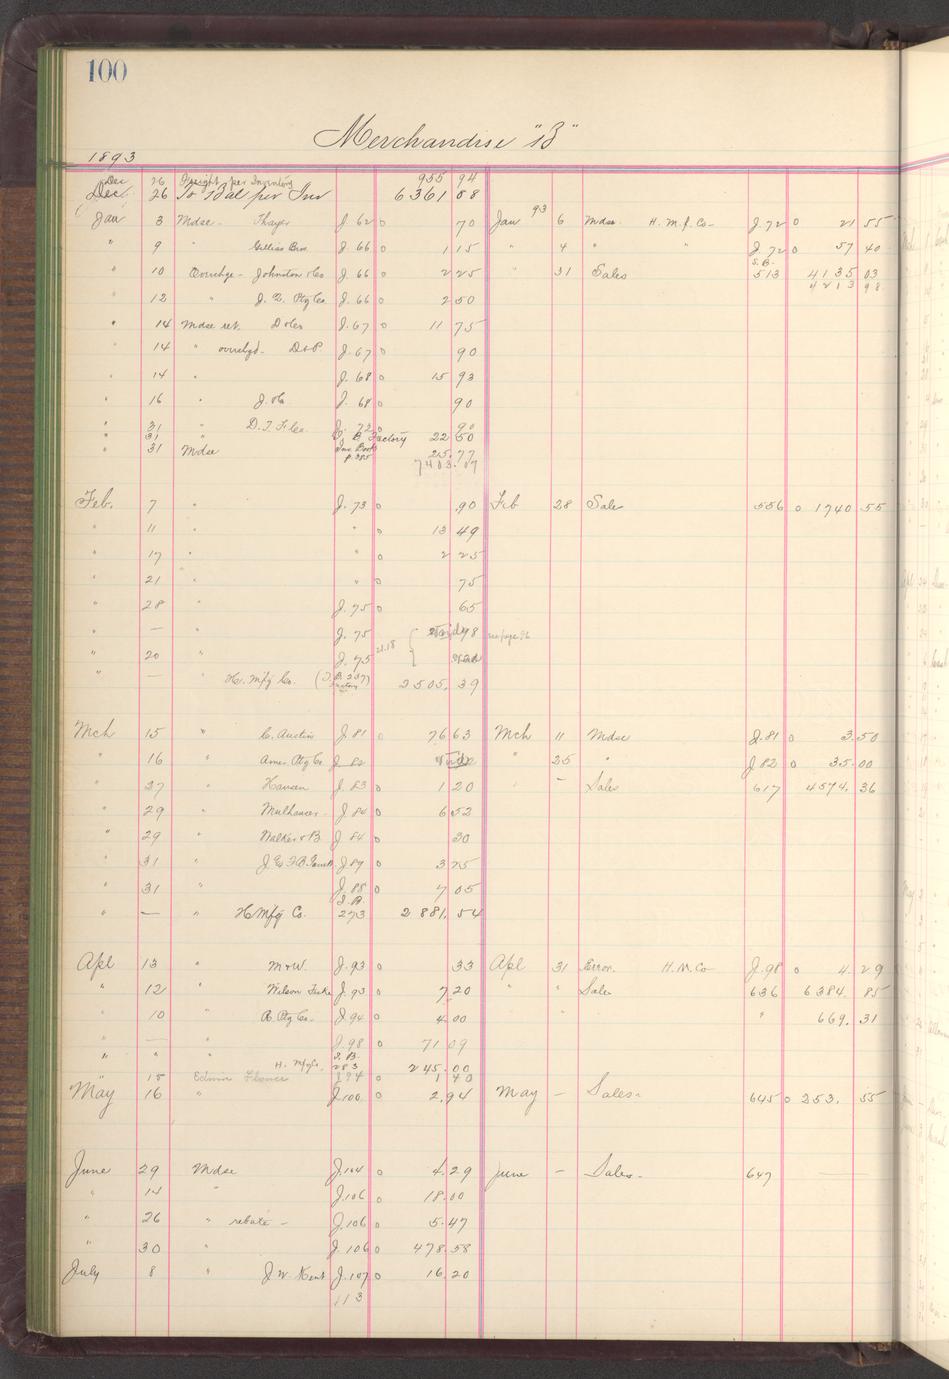 100
Merchandise "B"
1893
Dec 26 Freight per Inventory 955 94
Dec. 26 To Bal per Inv 6361 08
Jan 3 Mdse - Thayer J. 62 0 70 Jan 93 6 Mdse H. M. f. Co- J. 72 0 21 55
" 9 Gillis Bros J. 66 0 1 15 " 4 " " J. 72 0 57 40
" 10 Overchge - Johnston & Co J. 66 0 2 25 " 31 Sales S.B. 513 4135 03
4213 98
12 " J. D. Ptg Co J. 66 0 2 50
" 14 Mdse ret. J. 67 0 11 75
" 14 " overchgd. D & P. J. 67 0 90
" 14 " J. 68 0 15 93
" 16 " J. 68 0 90
" 31 " J. 72 0 90
" 31 " Factory 22 50
" 31 Mdse Inv. Book p. 385 25.77
7403.07
Feb. 7 " J. 73 0 .90 Feb 28 Sales 556 0 1740.55
" 11 " " 0 13 49
" 17 " " 0 2 25
" 21 " 0 75
" 28 " J. 75 0 65
" — " J. 75 see page 96
" 20 " J. 75 21.18
" — H. Mfg Co. (I.B. 237) Factory 2505.39
Mch 15 " C. Austin J 81 0 76 63 Mch 11 Mdse J. 81 0 3.50
" 16 " Amer. Ptg Co J 82 " 25 " J 82 0 35.00
27 " Hansen J 83 0 1 20 — Sales 617 4574.36
29 " J 84 0 6 52
" 29 " Walker & B J 84 0 30
" 31 " J 87 0 3 75
" 31 " J. 88 0 7 05
" — " H Mfg Co. I.B. 273 2881.54
Apl 13 " M & W. J. 93 0 33 Apl 31 Error. H. M. Co J. 98 0 4.29
" 12 " Wilson J. 93 0 7 20 " " Sales 636 6384.85
" 10 " B. Ptg Co. J. 94 0 4.00 " " 669.31
— " J. 98 0 71 09
" " " H. Mfg Co. I.B. 283 245.00
" 15 Edwin J 94 0 1 40
May 16 " J. 100 0 2.94 May — Sales- 645 0 253. 55
June 29 Mdse J. 104 0 4.29 June — Sales- 647
" 14 " J. 106 0 18.00
" 26 " rebate - J. 106 0 5.47
" 30 " J. 106 0 478.58
July 8 " J. W. Kent J. 107 0 16.20
113